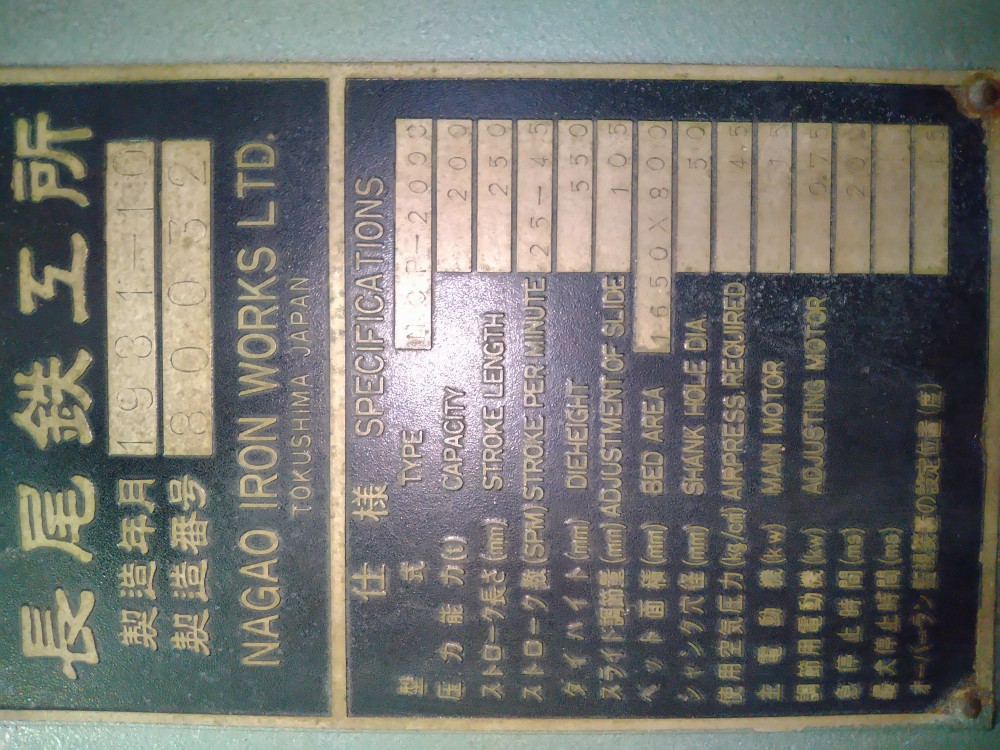 長尾鉄工所
製造年月 1981-10
製造番号 80032
NAGAO IRON WORKS LTD.
TOKUSHIMA JAPAN
仕様 SPECIFICATIONS
型式 TYPE
圧力能力(t) CAPACITY 200
ストローク長さ(mm) STROKE LENGTH 250
ストローク数(SPM) STROKE PER MINUTE 25-45
ダイハイト(mm) DIEHEIGHT 550
スライド調節量(mm) ADJUSTMENT OF SLIDE 105
ベット面積(mm) BED AREA 1650X800
シャンク穴径(mm) SHANK HOLE DIA. 50
使用空気圧力(kg/c㎡) AIRPRESS. REQUIRED
主電動機(kw) MAIN MOTOR
調節用電動機(kw) ADJUSTING MOTOR
急停止時間(ms)
最大停止時間(ms)
オーバーラン監視装置の設定位置(度)